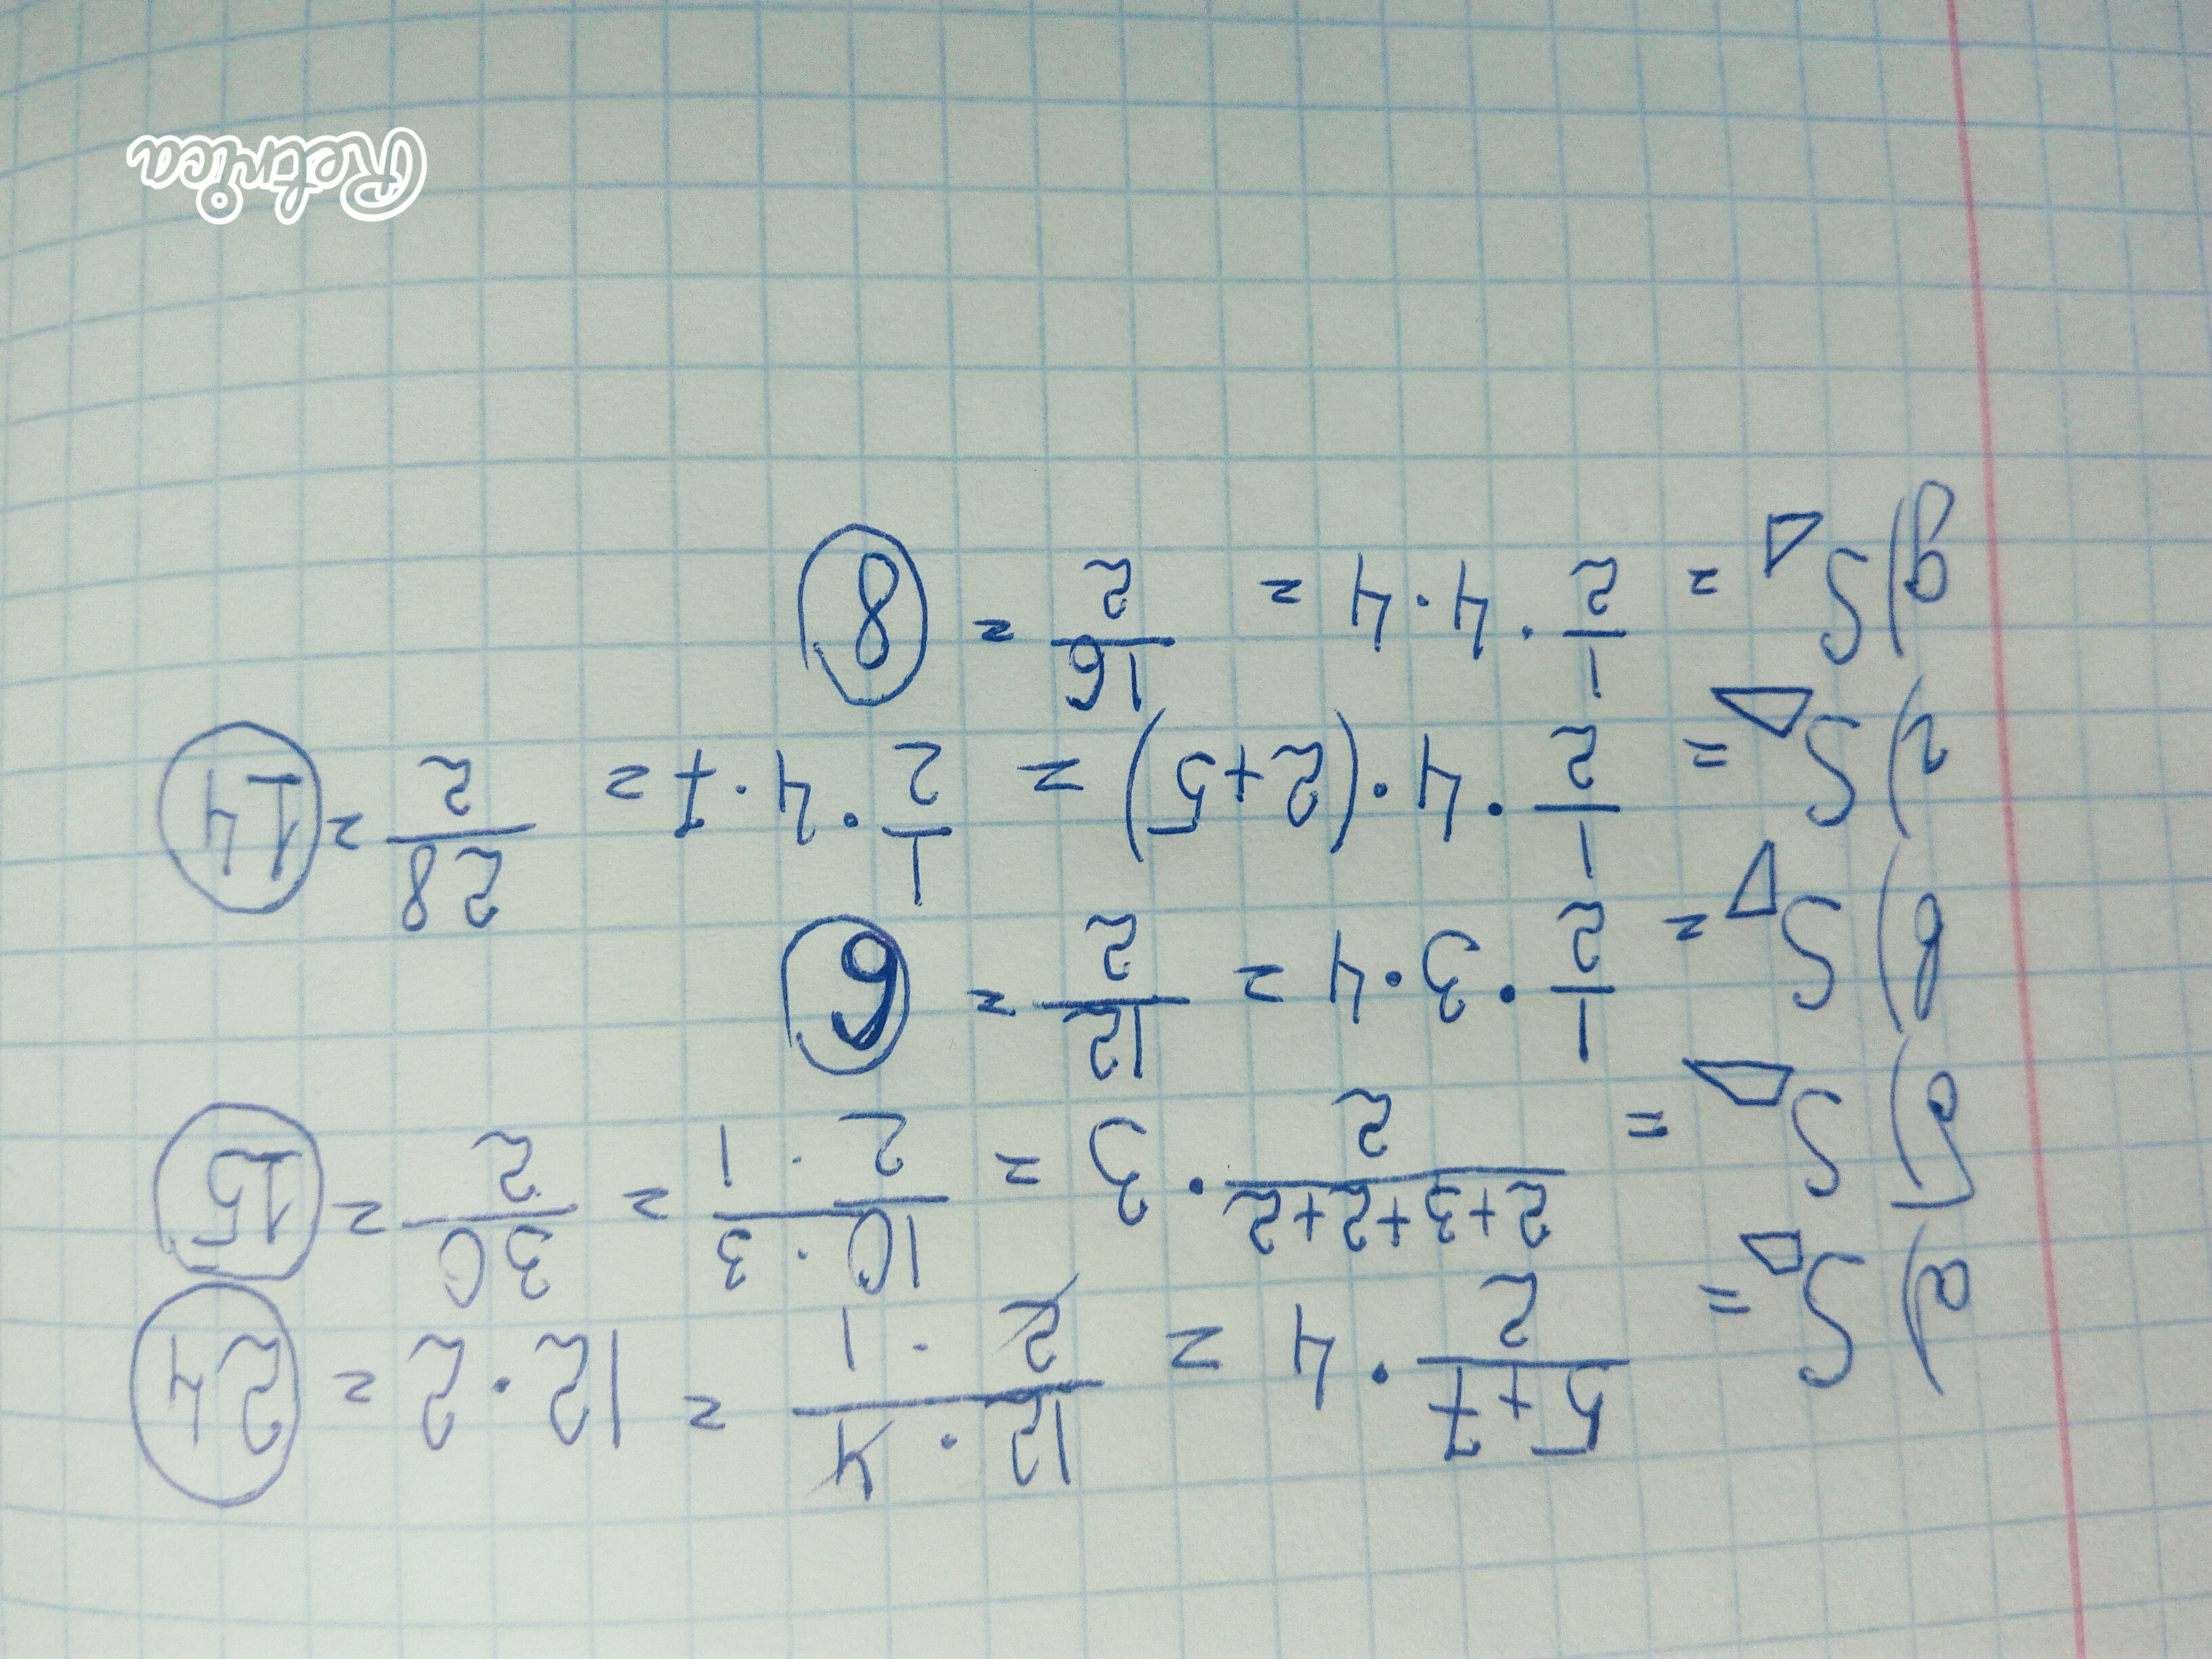 а) S▱ = \frac{5+7}{2} · 4 = \frac{12 · 4}{2 · 1} = 12 · 2 = 24
б) S▱ = \frac{2+3+2+2}{2} · 3 = \frac{10 · 3}{2 · 1} = \frac{30}{2} = 15
в) S△ = \frac{1}{2} · 3 · 4 = \frac{12}{2} = 6
г) S△ = \frac{1}{2} · 4 · (2+5) = \frac{1}{2} · 4 · 7 = \frac{28}{2} = 14
д) S△ = \frac{1}{2} · 4 · 4 = \frac{16}{2} = 8
Retrica